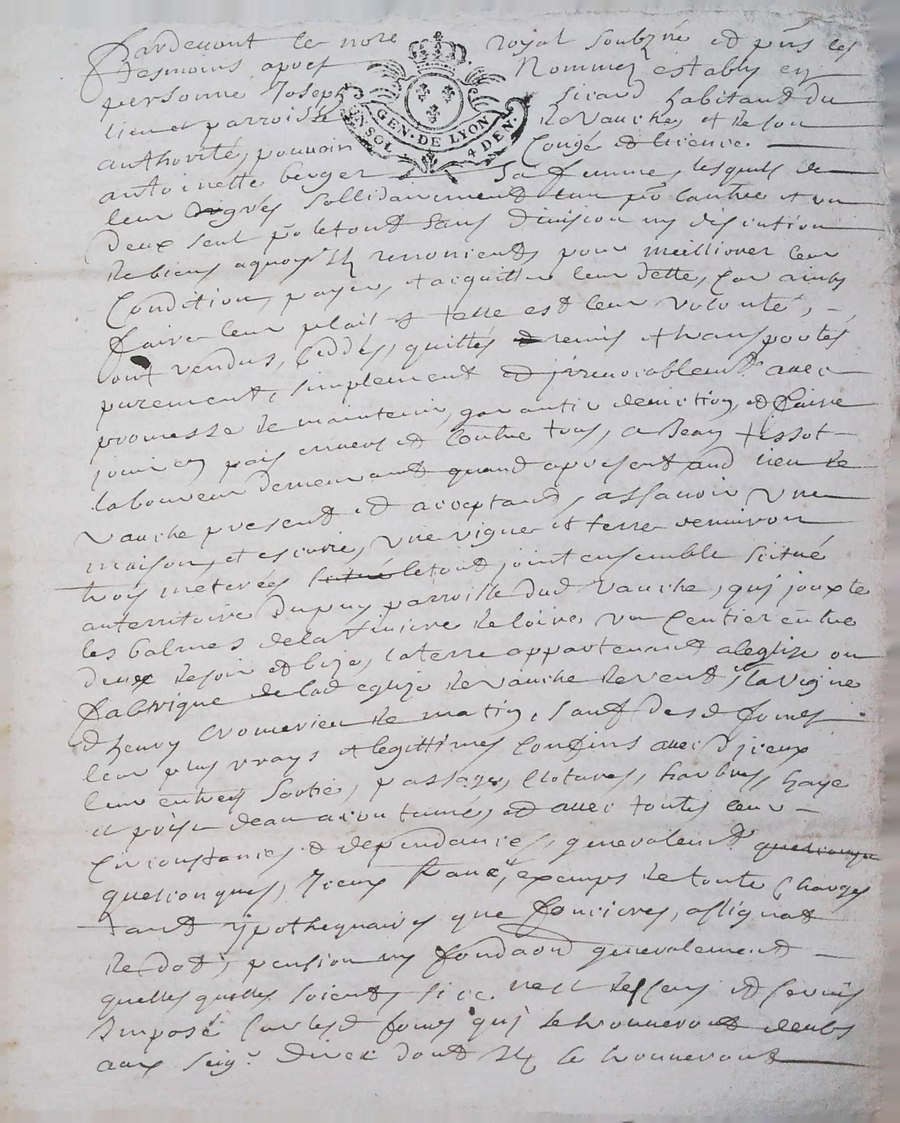 Pardevant le nore royal soubzné et pnts les
tesmoins apres Nommez establys en
personne Joseph sicard habitant du
lieu et parroisse de Vauche, & de son
authorité, pouvoir Congé et licence
GEN. DE LYON
UN SOL 4 DEN.
antoinette berger sa femme, lesquels de
leur grés sollidairement l'un po l'autre et un
deux seul po le tout sans division ny discution
de biens aquoy ilz renoncient, pour meilliorer leur
Condition, payer, & acquitter leur dette, car ainsy
faire leur plait & telle est leur volonté,
ont vendus, ceddés, quittés remis & transportés
purement, simplement et irrevocablemt avec
promesse de maintenir, garantir deviction, et faire
jouir en paix envers et Contre tous, a Jean tissot
laboureur demeurant quand apresent aud lieu de
Vauche present et acceptant, assavoir Une
maison, et escurie, une vigne et terre denviron
trois meterées le tout joint ensemble scitué
au territoire du puy parroisse dud Vauche, qui jouxte
les balmes de la Riviere de loire, un sentier entre
deux de soir et bize, la terre appartenant a leglize ou
fabrique de lad eglize de Vauche de vent, la vigne
d henry de matin, sauf desd
leur plus vrays & legittimes Confins avec d'jceux
leur entrées sortie, passages, clotures, harbres, haye
et prise deau acoutumé, et avec toutes leur
Circonstances et dependances, generalemt
quelconques, Jceux franc, exemps de toute Charges
tant ypothequaires que foncieres, assignat
de dot, pension ny fondaon generalement
quelles quelles soient, si ce nest des cens et servis
Imposé sur lesd fonds qui se trouveront deubs
aux seigr direct dont ilz se trouveront